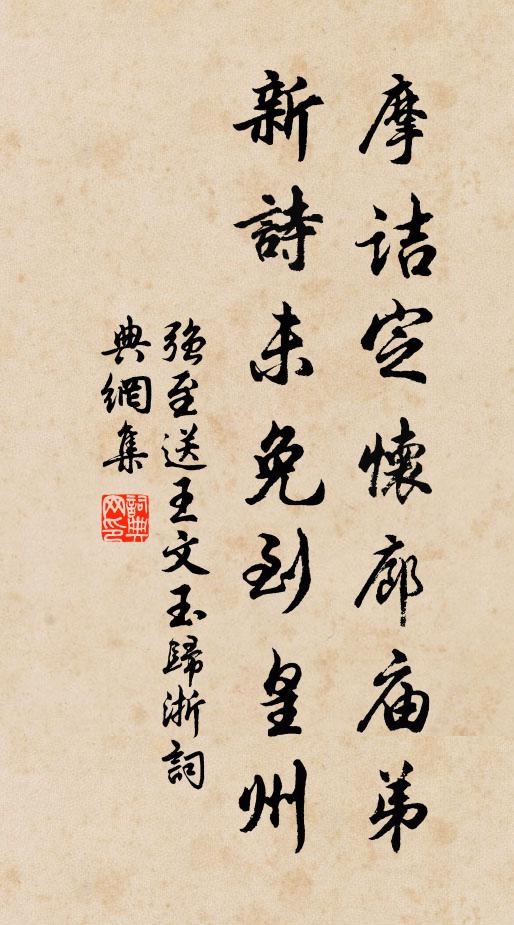 摩詰定懷廊庙弟
新詩未免到皇州
強至送王文玉歸浙詞
典網集
詞典網印